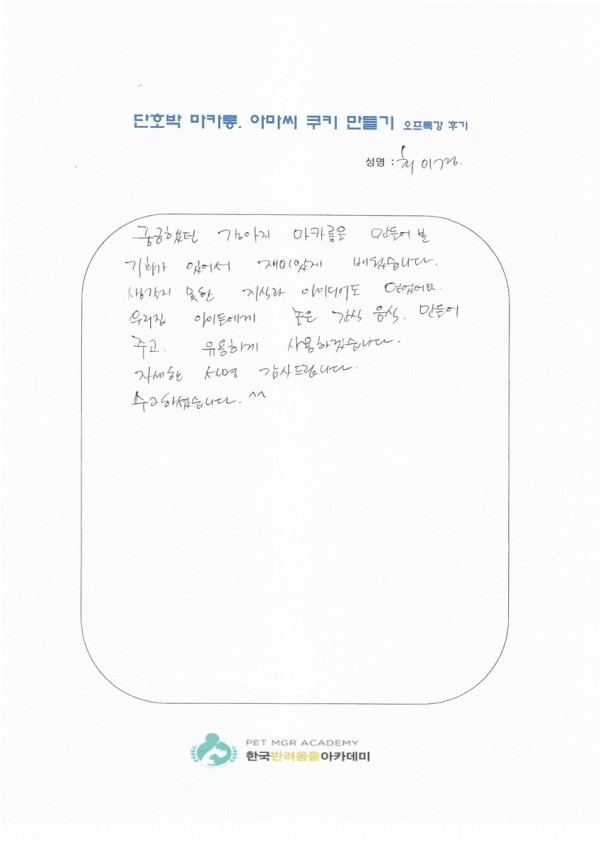 단호박 마카롱. 아마씨 쿠키 만들기 오프특강 후기
성명 : 최이경.
궁금했던 강아지 마카롱은 만들어 볼
기회가 있어서 재미있게 배웠습니다.
생각지 못한 지식과 아이디어도 얻었어요
우리집 아이들에게 좋은 간식 음식. 만들어
주고. 유용하게 사용하겠습니다.
자세한 설명 감사드립니다.
수고하셨습니다. ^^
PET MGR ACADEMY
한국반려동물아카데미